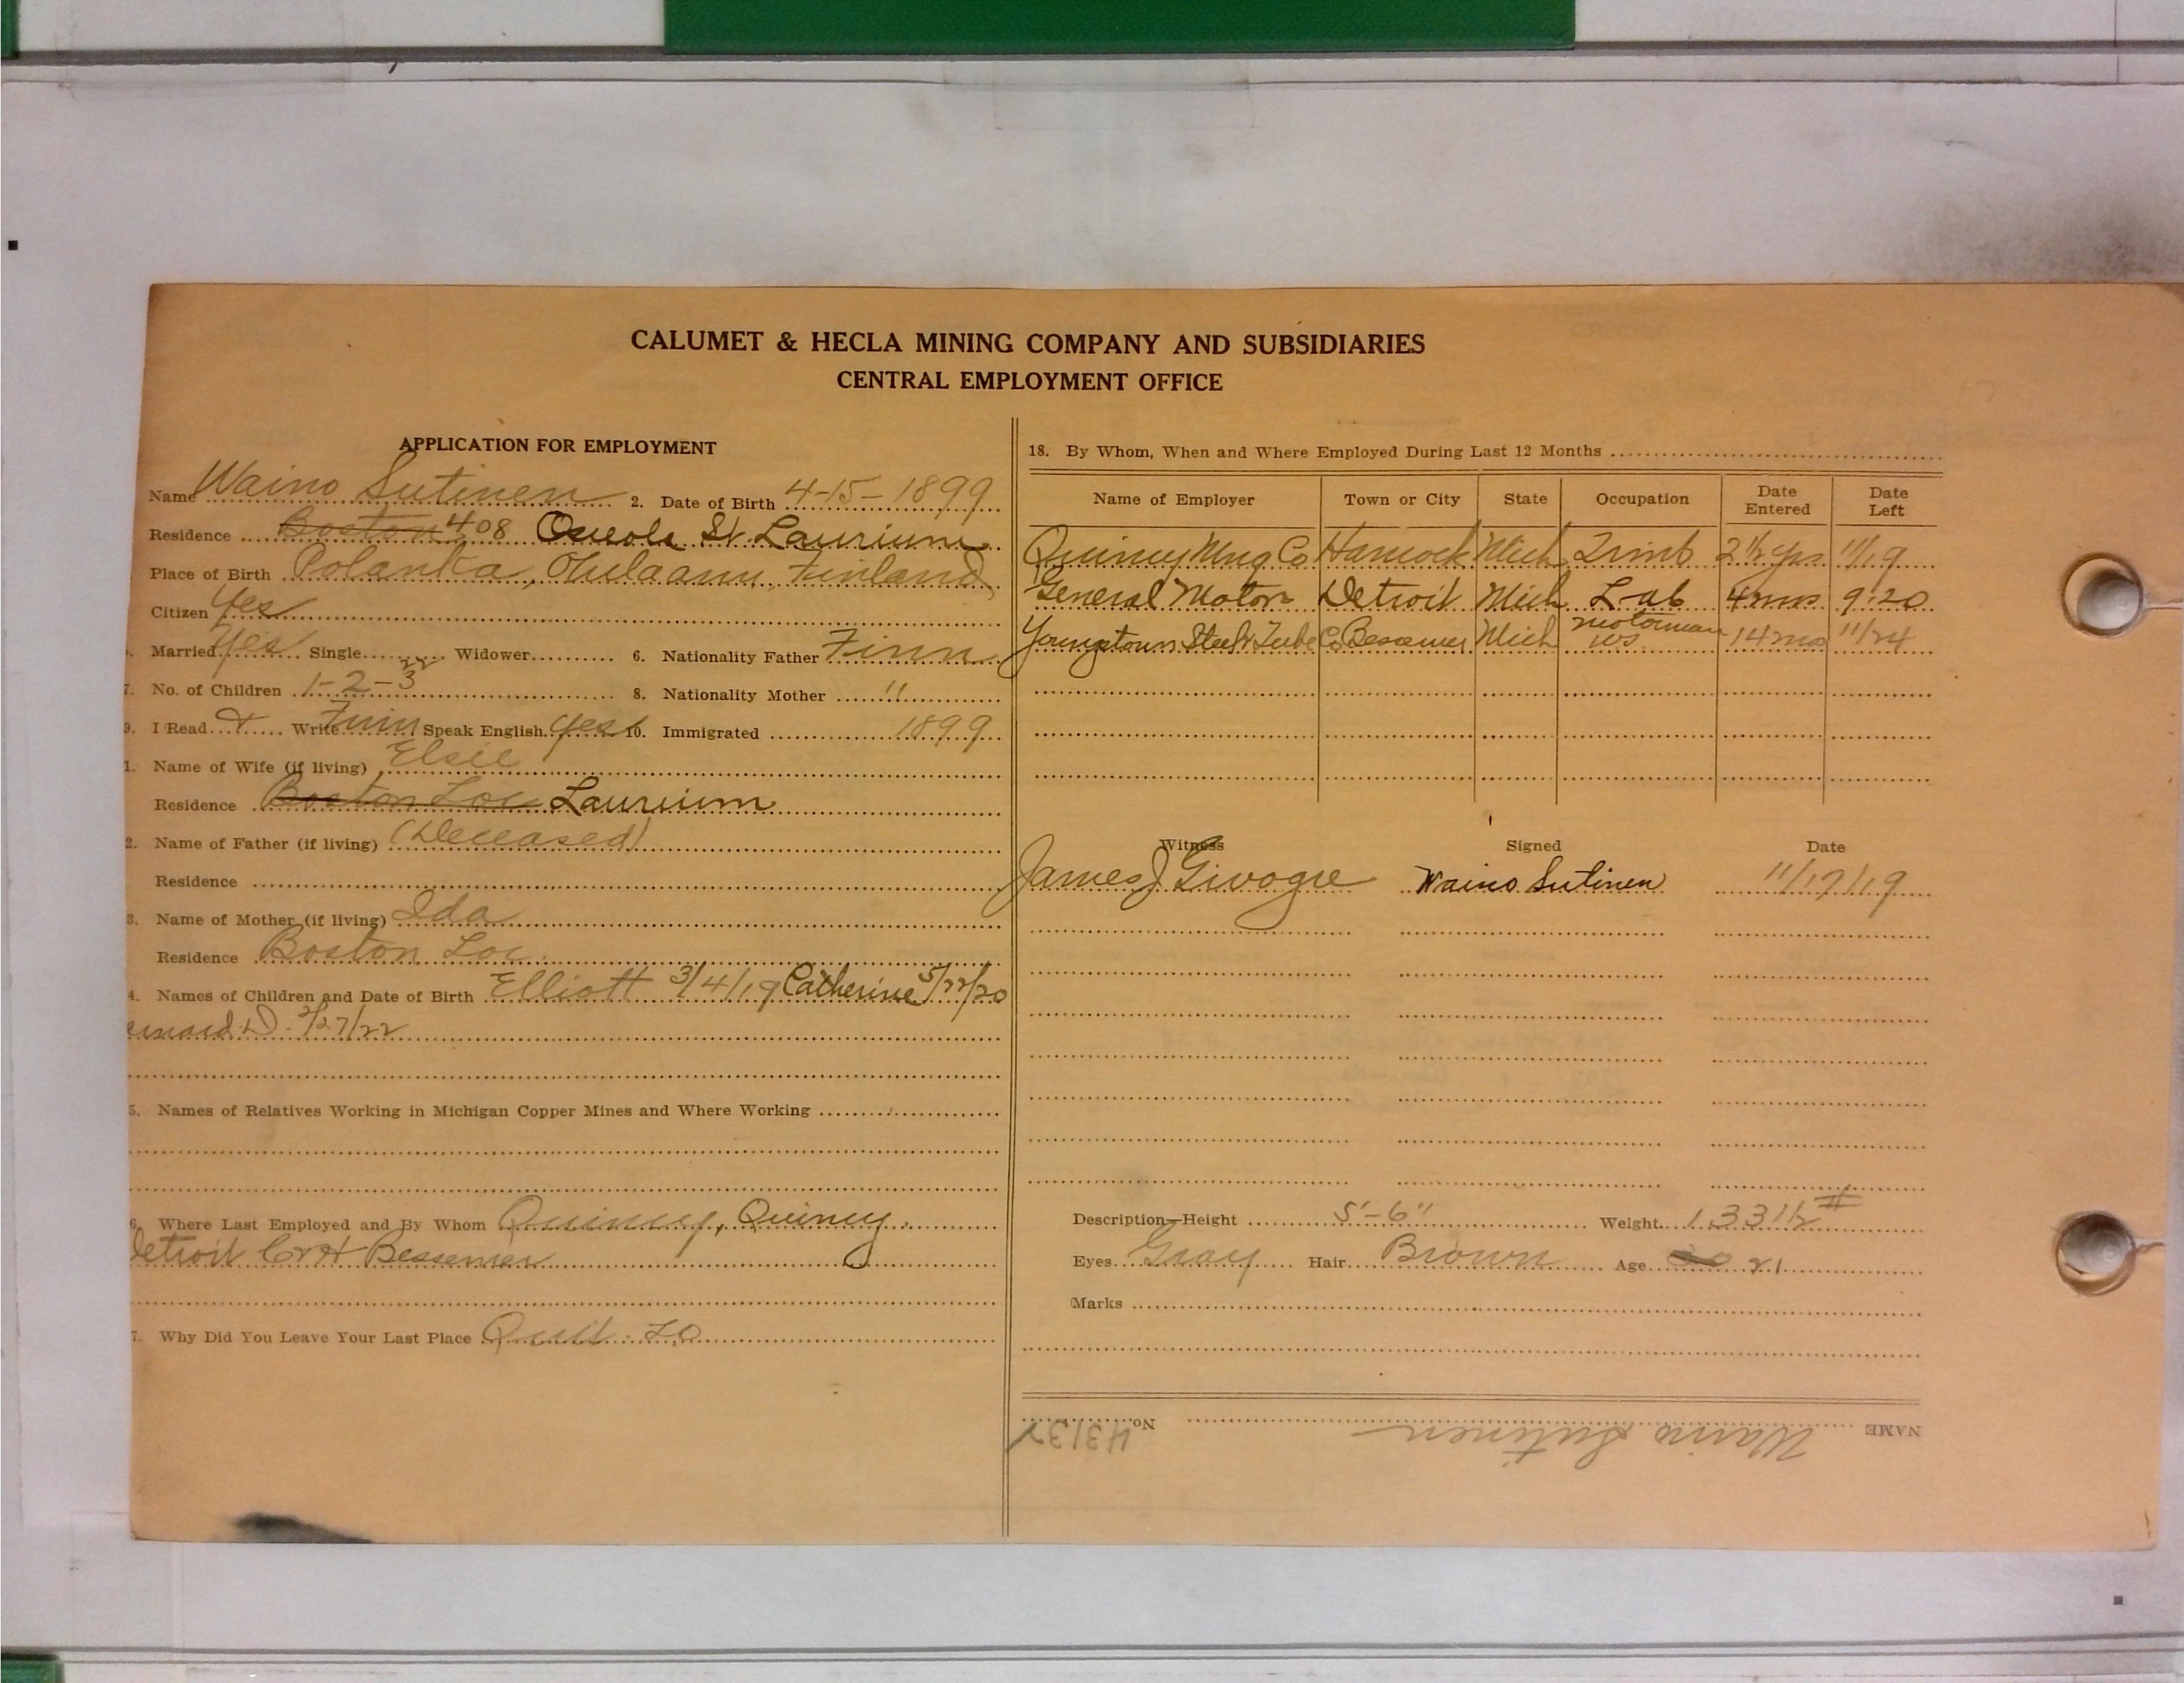 CALUMET & HECLA MINING COMPANY AND SUBSIDIARIES
CENTRAL EMPLOYMENT OFFICE
APPLICATION FOR EMPLOYMENT
Name Waino Sutinen 2. Date of Birth 4-15-1899
Residence Boston 408 Osceola St. Laurium
Place of Birth Polanka, Finland
Citizen Yes
Married Yes Single Widower 6. Nationality Father Finn
7. No. of Children 1-2-3 22 8. Nationality Mother "
9. I Read & Write Finn Speak English yes 10. Immigrated 1899
1. Name of Wife (if living) Elsie
Residence Boston Loc Laurium
2. Name of Father (if living) (Deceased)
Residence
3. Name of Mother (if living) Ida
Residence Boston Loc.
4. Names of Children and Date of Birth Elliott 3/4/19 Catherine 5/22/20
D. 2/27/22
5. Names of Relatives Working in Michigan Copper Mines and Where Working
6. Where Last Employed and By Whom Quincy, Quincy.
Detroit C&H Bessemer
7. Why Did You Leave Your Last Place Quit LO
18. By Whom, When and Where Employed During Last 12 Months
Name of Employer Town or City State Occupation Date Entered Date Left
Quincy Mng Co Hancock Mich Trim 2 1/2 yrs 11/19
General Motors Detroit Mich Lab 4 mos 9-20
Youngstown Steel & Tube Co Bessemer Mich motorman 14 mo 11/24
Witness Signed Date
James J Waino Sutinen 11/17/19
Description—Height 5'-6" Weight 133 1/2 #
Eyes Gray Hair Brown Age 20 21
Marks
NAME Waino Sutinen No. 4313